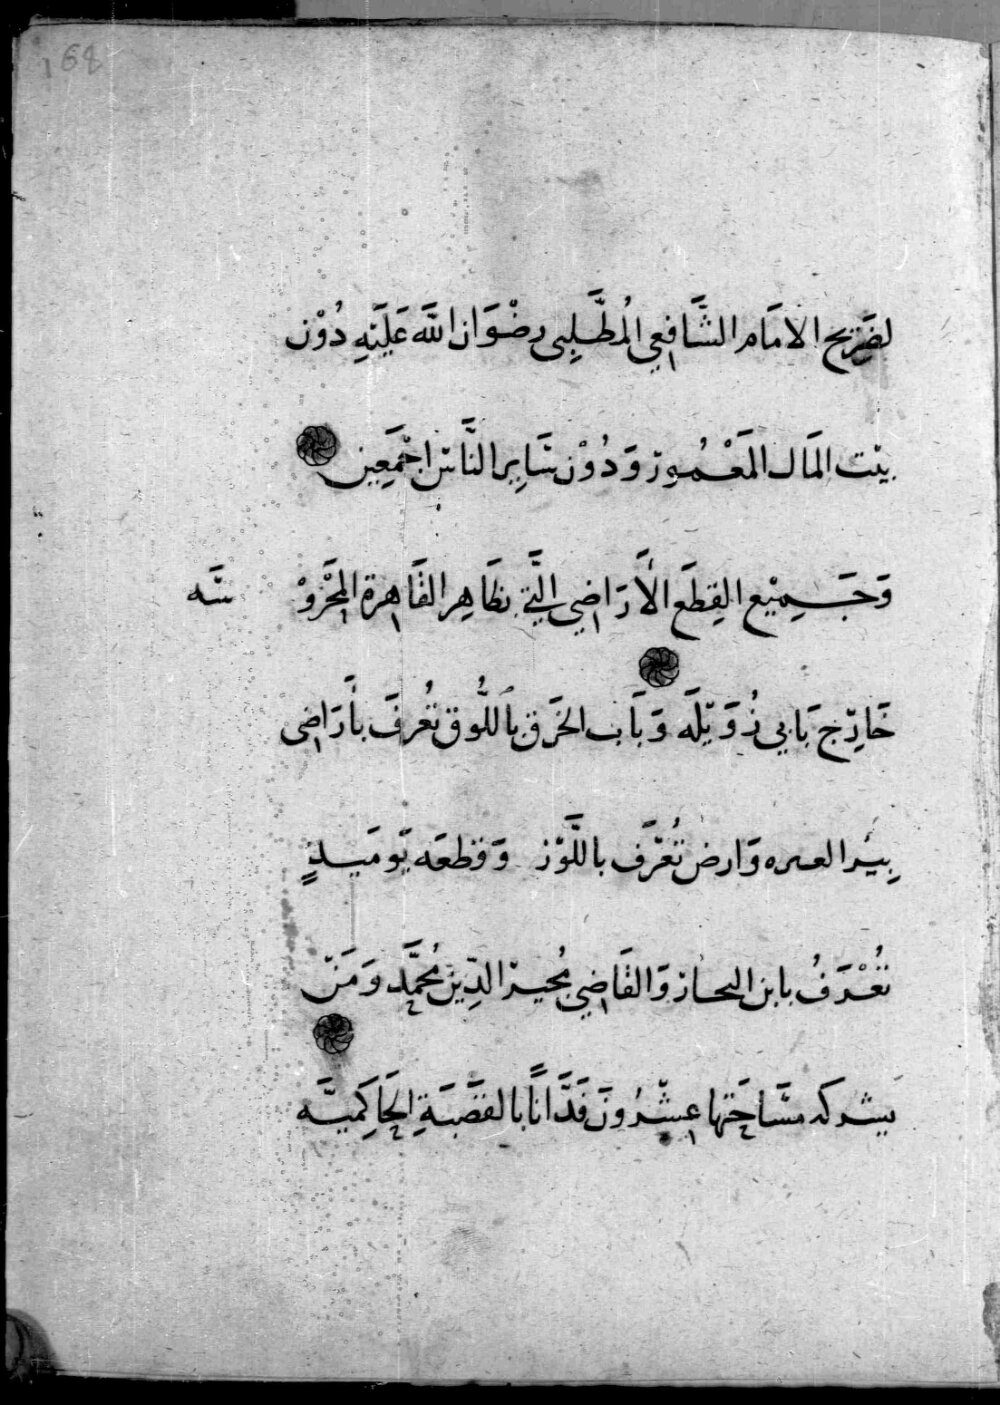 168
لضَرِيح الامَام الشَّافِعِي المُطَّلِبِى رضْوَان اللَّه عَلَيْهِ دُوْن
بيْت المَال المَعْمُور وَدُوْن سَايِر النَّاس اجْمَعِين
وَجَمِيْع القِطَع الأَرَاضِي الَّتِي بظَاهِر القَاهِرة المَحْرُوْسَه
خَارِج بَابِي زُوَيْلَه وَبَاب الخَرق باللُّوق تُعْرفَ بأَرَاضِى
بِير وَارض تُعْرَف باللَّوْز وَقطعَه يَوميذٍ
تُعْرَفُ بابن وَالقَاضِي الدِّين مُحَمَّد وَمَنْ
يشركه مسَاحَتها عِشْرُونَ فَدَّانًا بالقصَبَةِ الحَاكِميَّه